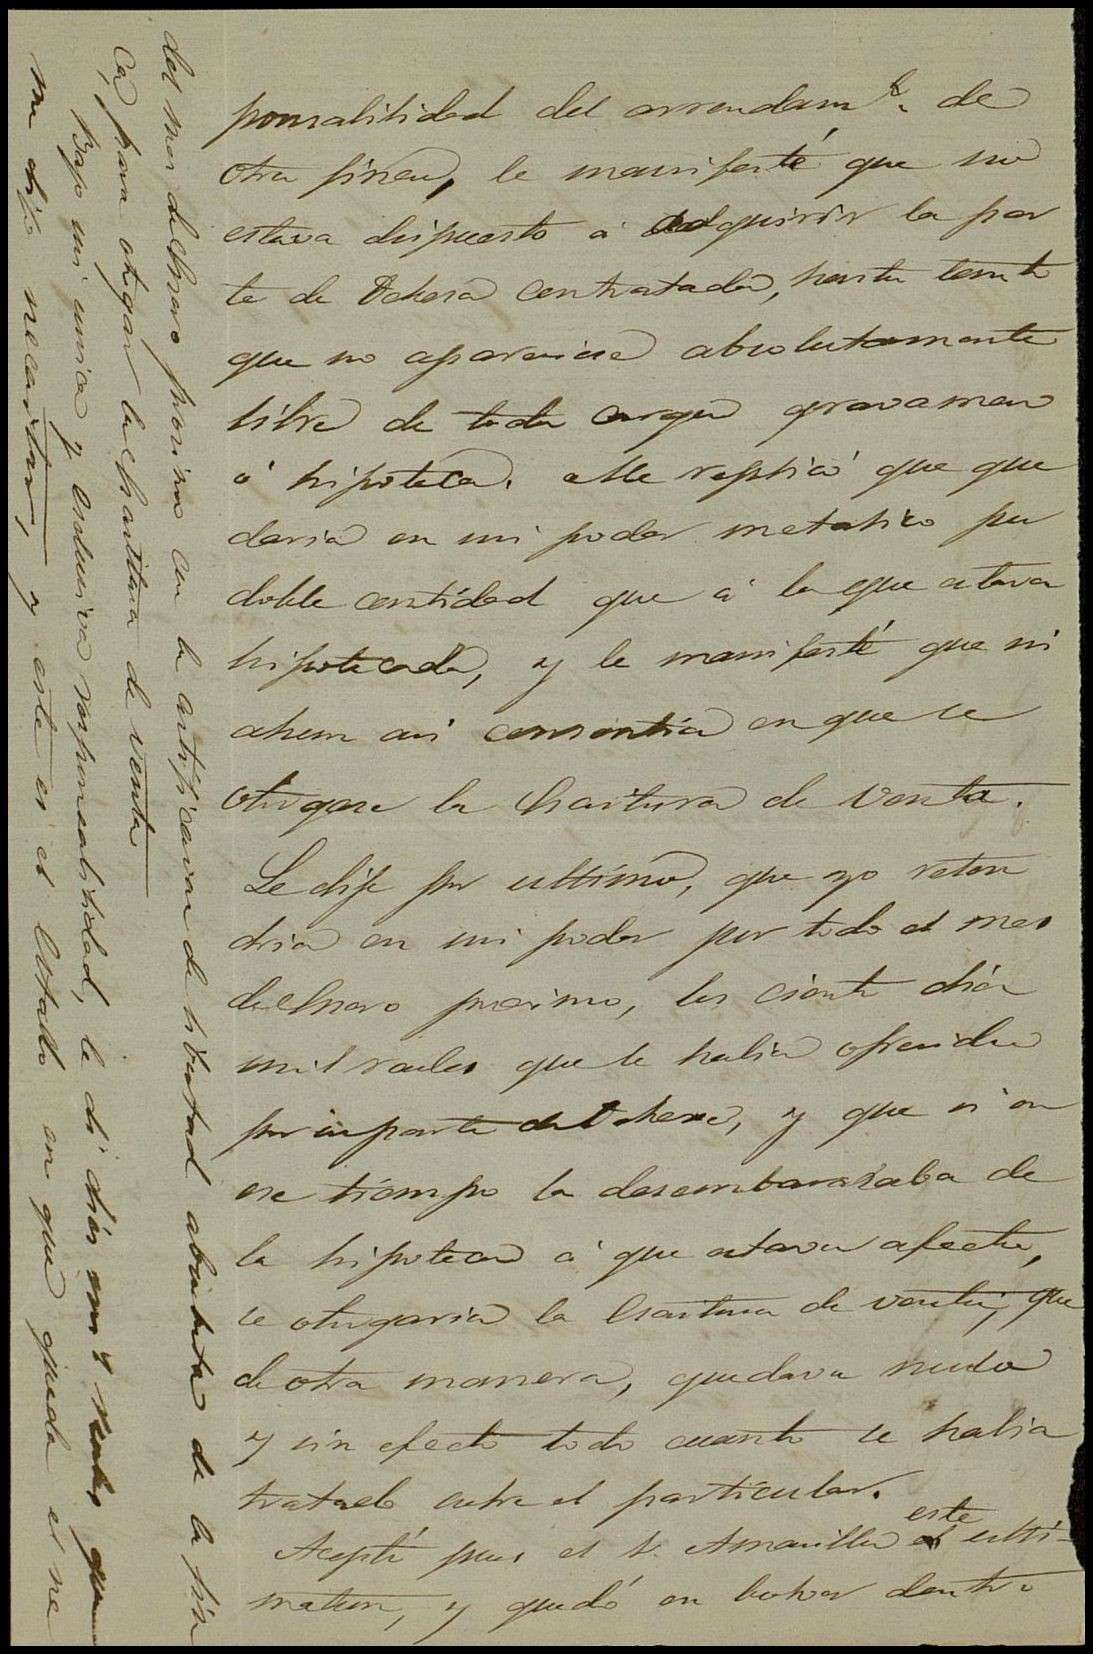 ponsalitidad del arrendam.to de
otra finca, le manifesté que no
estava dispuesto á adquirir la par
te de Dehesa contratada, hasta tanto
que no apareciese absolutamente
libre de toda carga gravamen
ó hipoteca. Me replicó que que
daria en mi poder metalico por
doble cantidad que á la que estava
hipotecada, y le manifesté que ni
ahun asi consentia en que se
otorgase la Escritura de Venta.
Le dije por ultimo, que yo reten
dria en mi poder por todo el mes
de Enero proximo, los ciento diez
mil reales que le habia ofrecido
por su parte de Dehesa, y que si en
ese tiempo la desembarazaba de
la hipoteca á que estava afecta,
se otorgaria la Escritura de venta, que
de otra manera, quedava nulo
y sin efecto todo cuanto se habia
tratado sobre el particular.
Aceptó pues el Sr. Amarilla este ulti-
matum, y quedó en bolver dentro
del mes de Enero proximo con la certificacion de libertad absoluta de la fin
ca, para otorgar la Escritura de venta
Bajo mi unica y esclusiva responsalitidad, le di diez mil reales que
me dijo necesitar, y este es el estado en que queda el ne